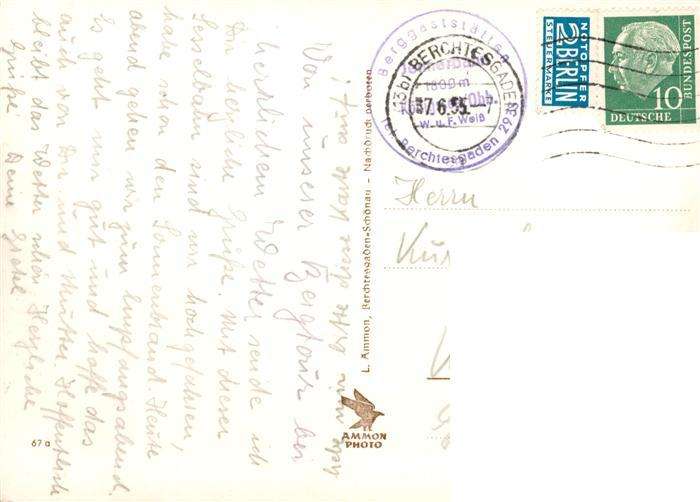 Von unserer Bergtour bei
herrlichem Wetter sende ich
Dir herzliche Grüße. Mit dieser
Seilbahn sind wir hochgefahren,
habe schon den Sonnenbrand. Heute
abend gehen wir zum Empfangsabend.
Es geht mir gut und hoffe das
auch von Dir und Mutter. Hoffentlich
bleibt das Wetter schön. Herzliche
Grüße Deine Gretel
mir bitte diese Karte auf!
67 a
L. Ammon, Berchtesgaden-Schönau - Nachdruck verboten
AMMON
PHOTO
Berggaststätten
1800 m
W. u. F. Weiß
Tel. Berchtesgaden 2933
BERCHTESGADEN
NOTOPFER
2 BERLIN
STEUERMARKE
10
DEUTSCHE
BUNDESPOST
Herrn